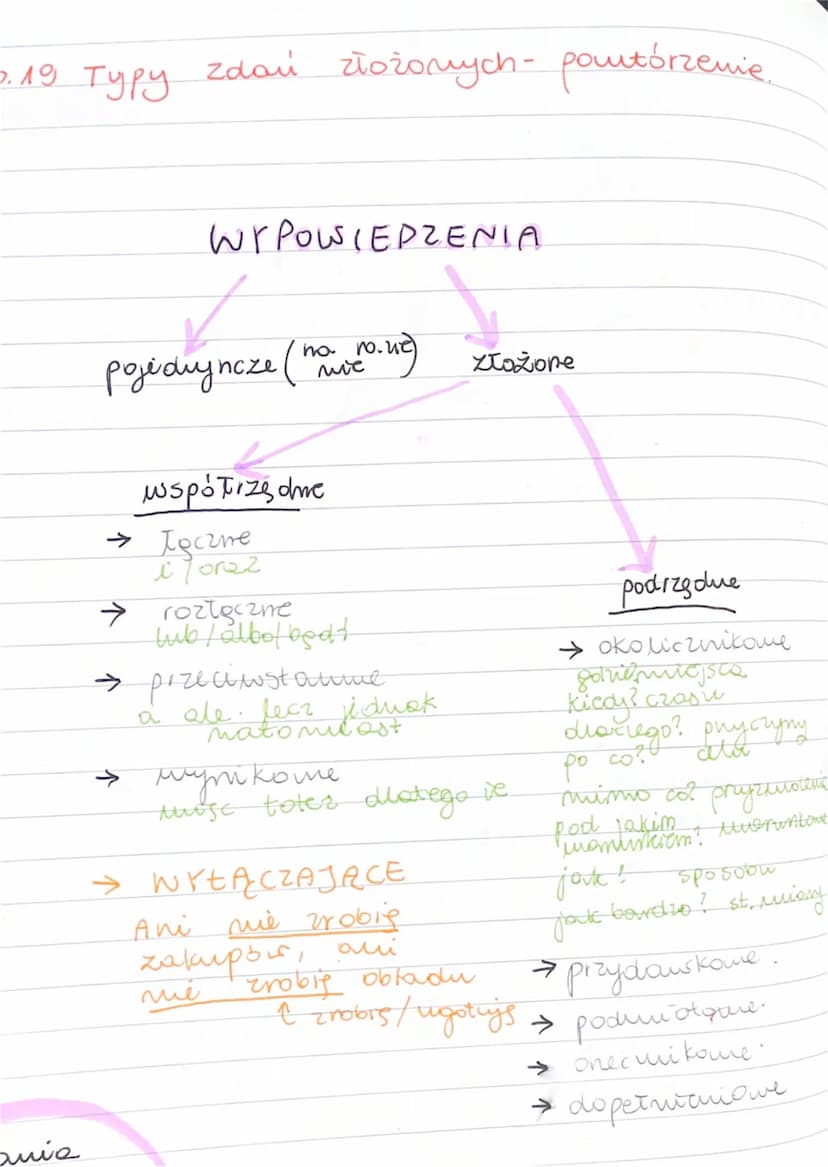 .19 Typy zdań złożonych - powtórzenie.
WYPOWIEDZENIA
pojedyncze (na
nie)
złożone
współrzędne
→ łączne
i / oraz
→ rozłączne
lub/albo/bądź
→ przeciwstawne
a ale lecz jednak
natomiast
→ wynikowe
więc toteż dlatego że
→ WYŁĄCZAJĄCE
Ani nie zrobię
zakupów, ani
nie zrobię obiadu
↑ zrobię/ugotuję
podrzędne
→ okolicznikowe
gdzie? miejsca
kiedy? czasu
dlaczego? przyczyny
po co? celu
mimo co? przyzwolenia
pod jakim
warunkiem? warunkowe
jak? sposobu
jak bardzo? st. i miary
→ przydawkowe.
→ podmiotowe.
→ orzecznikowe.
→ dopełnieniowe
ania